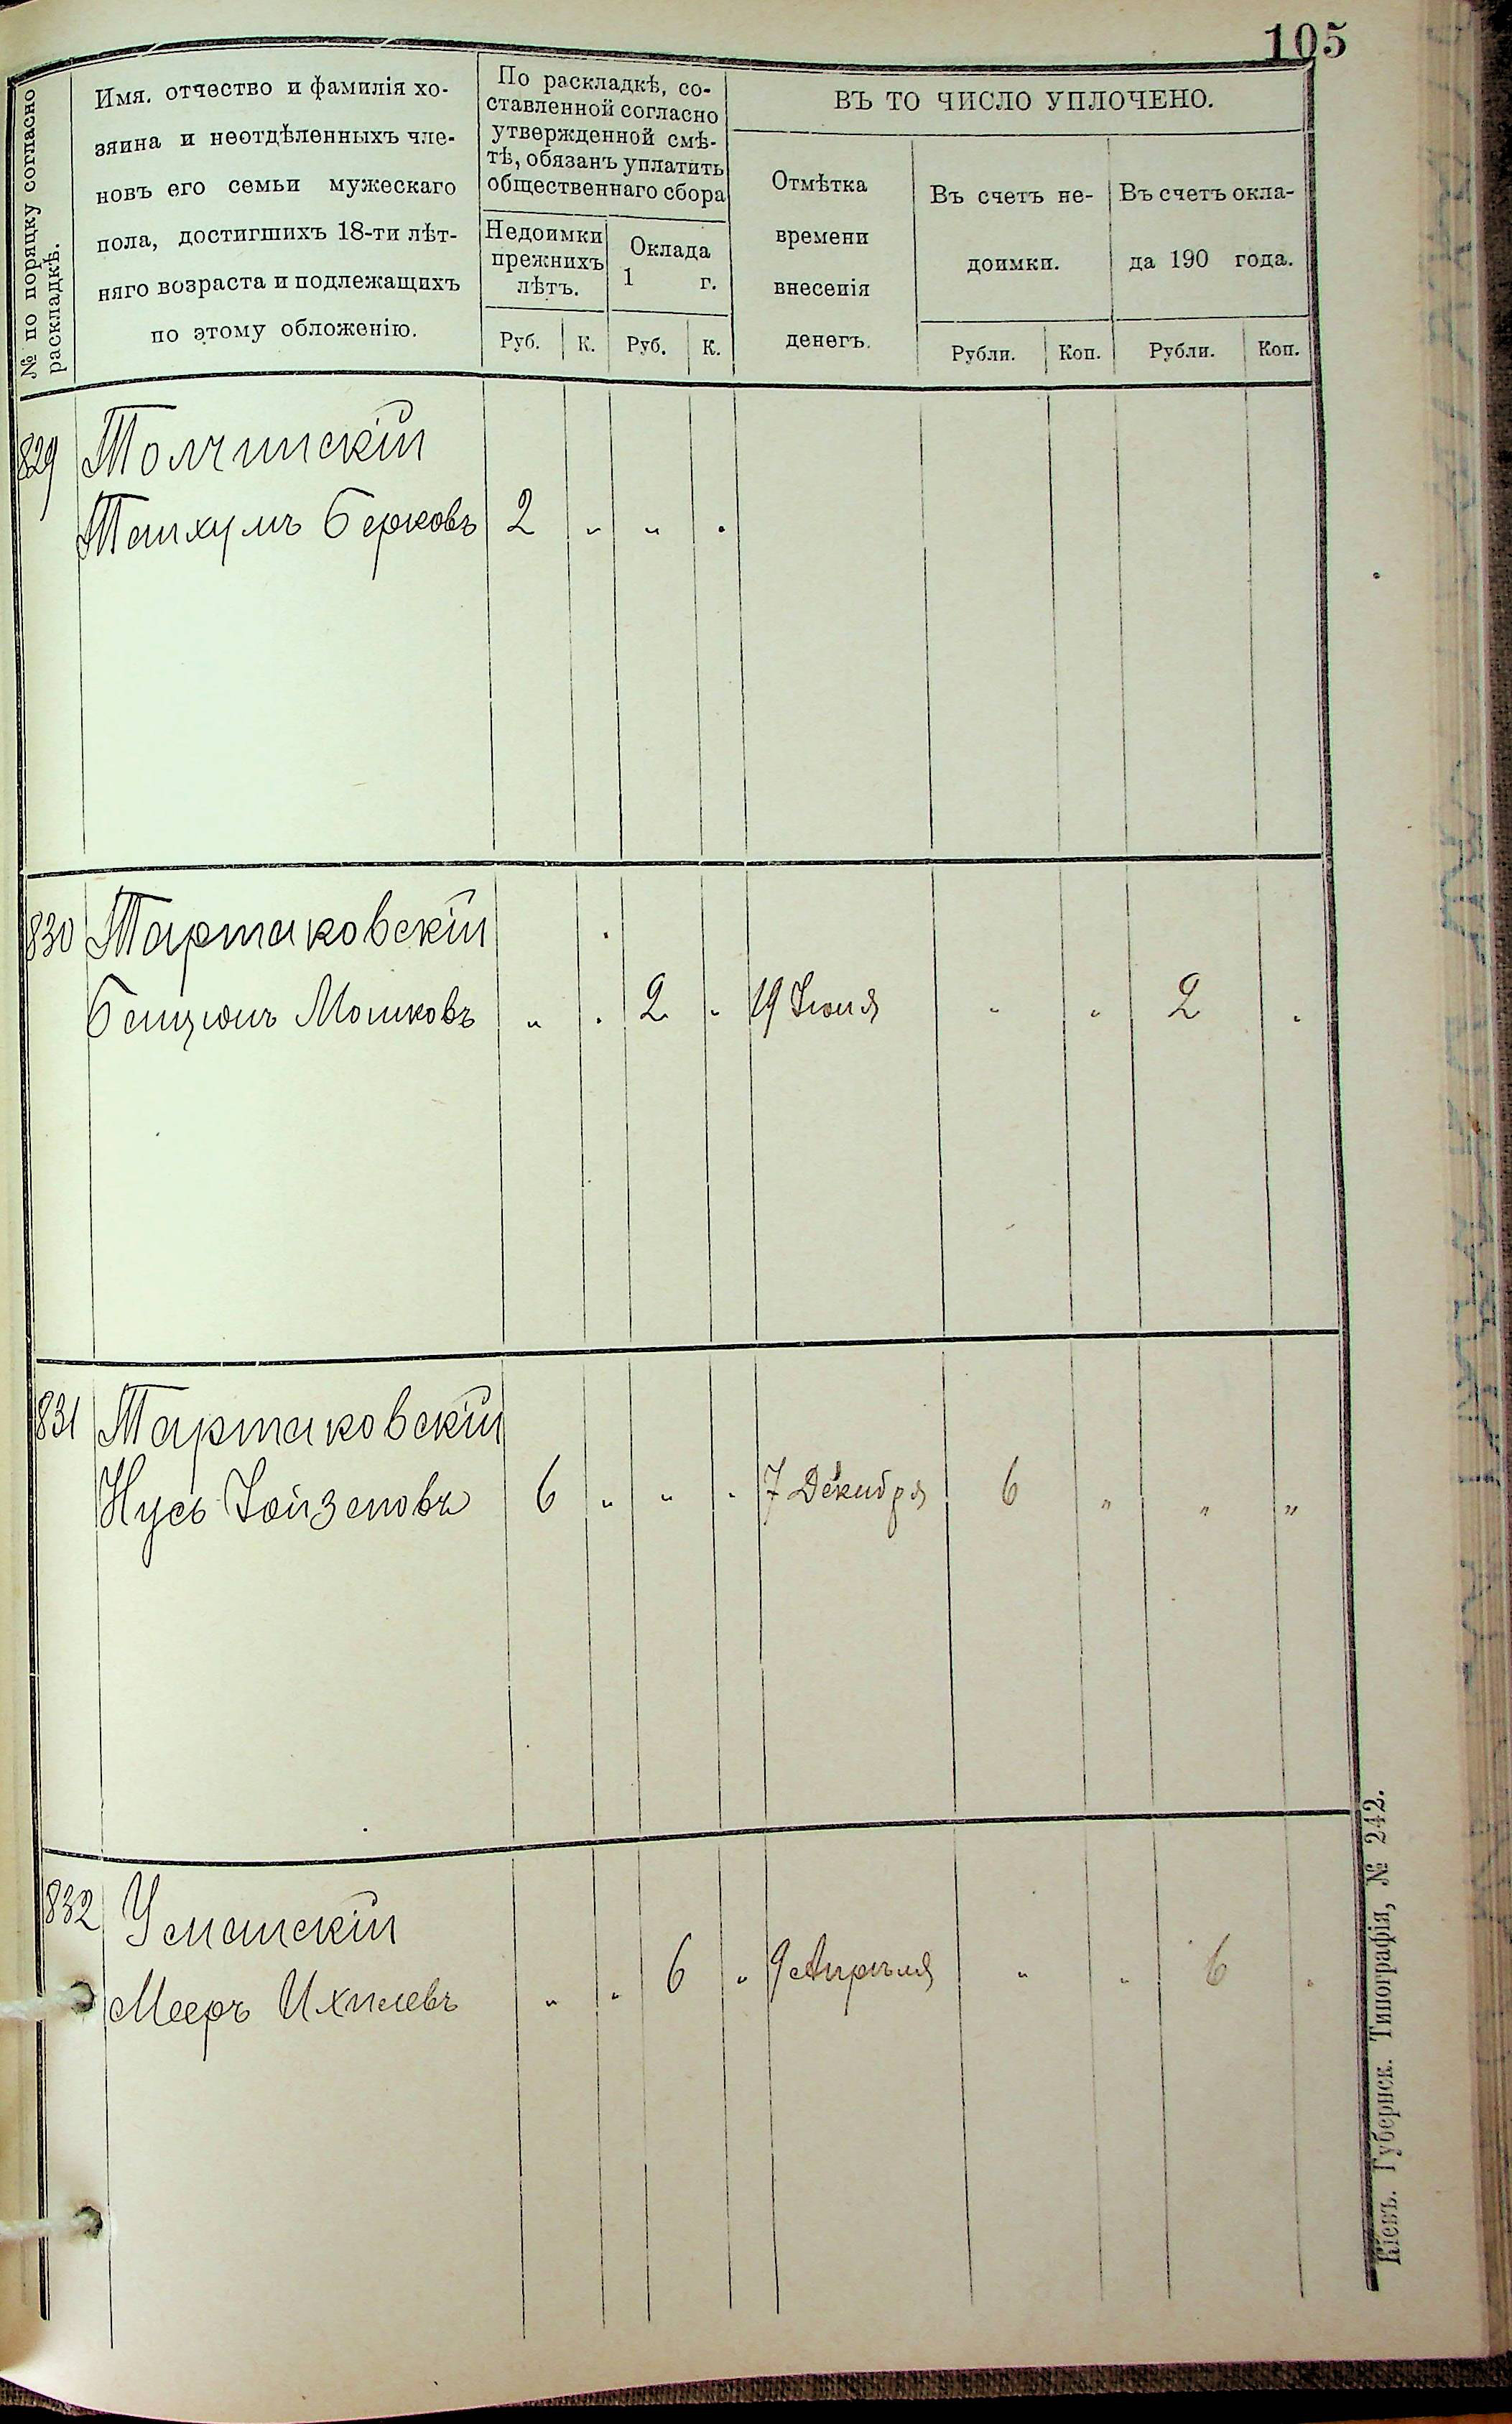 105
№ по порядку согласно
раскладкѣ.
Имя, отчество и фамилія хо-
зяина и неотдѣленныхъ чле-
новъ его семьи мужескаго
пола, достигшихъ 18-ти лѣт-
няго возраста и подлежащихъ
по этому обложенію.
По раскладкѣ, со-
ставленной согласно
утвержденной смѣ-
тѣ, обязанъ уплатить
общественнаго сбора
Недоимки
прежнихъ
лѣтъ.
Оклада
1 г.
Руб. К. Руб. К.
ВЪ ТО ЧИСЛО УПЛОЧЕНО.
Отмѣтка
времени
внесенія
денегъ.
Въ счетъ не-
доимки.
Въ счетъ окла-
да 190 года.
Рубли. Коп. Рубли. Коп.
829 Толчинскій
Танхумъ Берковъ 2 " " "
830 Тартаковскій
Бенціонъ Мошковъ " " 2 " 19 Іюня " " 2 "
831 Тартаковскій
Нусь Іойзеповъ 6 " " " 7 Декабря 6 " " "
832 Уманскій
Мееръ Ихилевъ " " 6 " 9 Апрѣля " " 6 "
Кіевъ. Губернск. Типографія, № 242.